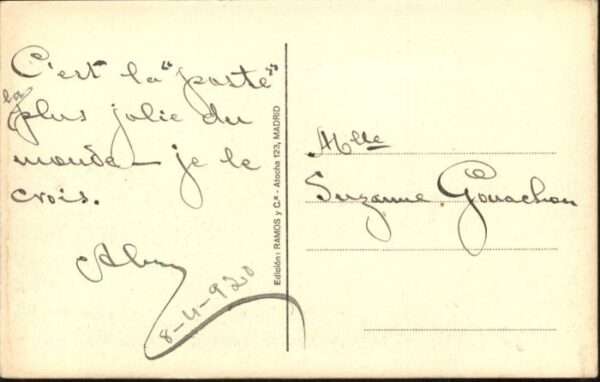 C'est la "poste"
la plus jolie du
monde — je le
crois.
8-4-920
Edición: RAMOS y C.ª - Atocha 123, MADRID
Mlle
Suzanne Gouachon